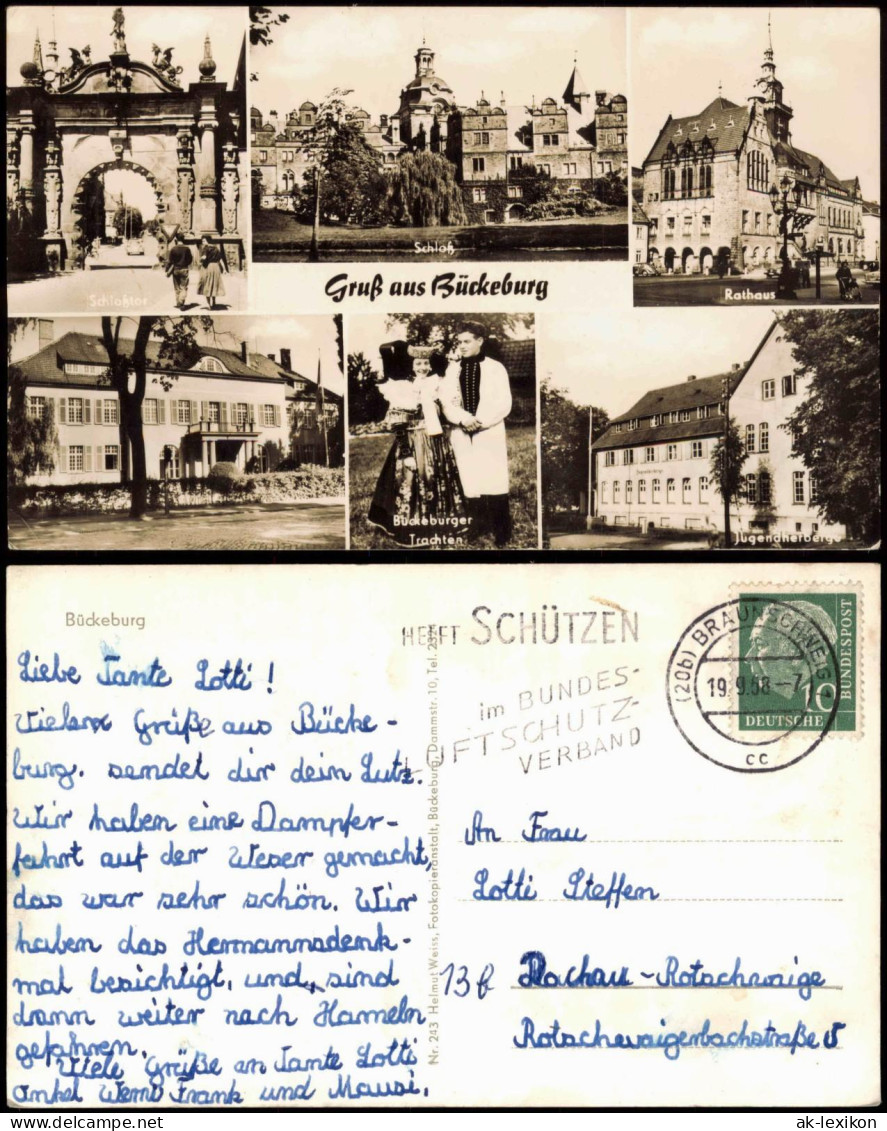 Schloßtor
Schloß
Rathaus
Gruß aus Bückeburg
Bückeburger
Trachten
Jugendherberge
Bückeburg
Liebe Tante Lotti!
Viele Grüße aus Bücke-
burg. sendet dir dein Lutz.
Wir haben eine Dampfer-
fahrt auf der Weser gemacht,
das war sehr schön. Wir
haben das Hermannsdenk-
mal besichtigt, und sind
dann weiter nach Hameln
gefahren.
Viele Grüße an Tante Lotti
onkel Werni Frank und Mausi.
Nr. 243 Helmut Weiss, Fotokopieranstalt, Bückeburg, Dammstr. 10, Tel. 2394
HELFT SCHÜTZEN
im BUNDES-
LUFTSCHUTZ-
VERBAND
(20b) BRAUNSCHWEIG
19.9.58-7
cc
10
DEUTSCHE
BUNDESPOST
An Frau
Lotti Steffen
13b Dachau-Rotschwaige
ak-lexikon